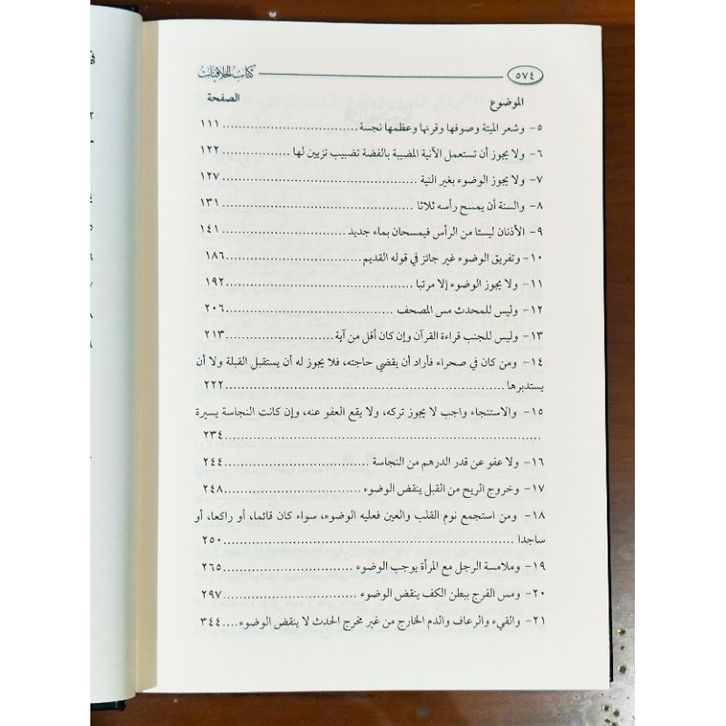 ٥٧٤ كتاب الخلافيات
الموضوع الصفحة
٥- وشعر الميتة وصوفها وقرنها وعظمها نجسة .......... ١١١
٦- ولا يجوز أن تستعمل الآنية المضببة بالفضة تضبيب تزيين لها .......... ١٢٢
٧- ولا يجوز الوضوء بغير النية .......... ١٢٧
٨- والسنة أن يمسح رأسه ثلاثا .......... ١٣١
٩- الأذنان ليستا من الرأس فيمسحان بماء جديد .......... ١٤١
١٠- وتفريق الوضوء غير جائز في قوله القديم .......... ١٨٦
١١- ولا يجوز الوضوء إلا مرتبا .......... ١٩٢
١٢- وليس للمحدث مس المصحف .......... ٢٠٦
١٣- وليس للجنب قراءة القرآن وإن كان أقل من آية .......... ٢١٣
١٤- ومن كان في صحراء فأراد أن يقضي حاجته، فلا يجوز له أن يستقبل القبلة ولا أن
يستدبرها .......... ٢٢٢
١٥- والاستنجاء واجب لا يجوز تركه، ولا يقع العفو عنه، وإن كانت النجاسة يسيرة
.......... ٢٣٤
١٦- ولا عفو عن قدر الدرهم من النجاسة .......... ٢٤٤
١٧- وخروج الريح من القبل ينقض الوضوء .......... ٢٤٨
١٨- ومن استجمع نوم القلب والعين فعليه الوضوء، سواء كان قائما، أو راكعا، أو
ساجدا .......... ٢٥٠
١٩- وملامسة الرجل مع المرأة يوجب الوضوء .......... ٢٦٥
٢٠- ومس الفرج ببطن الكف ينقض الوضوء .......... ٢٩٧
٢١- والقيء والرعاف والدم الخارج من غير مخرج الحدث لا ينقض الوضوء .... ٣٤٤